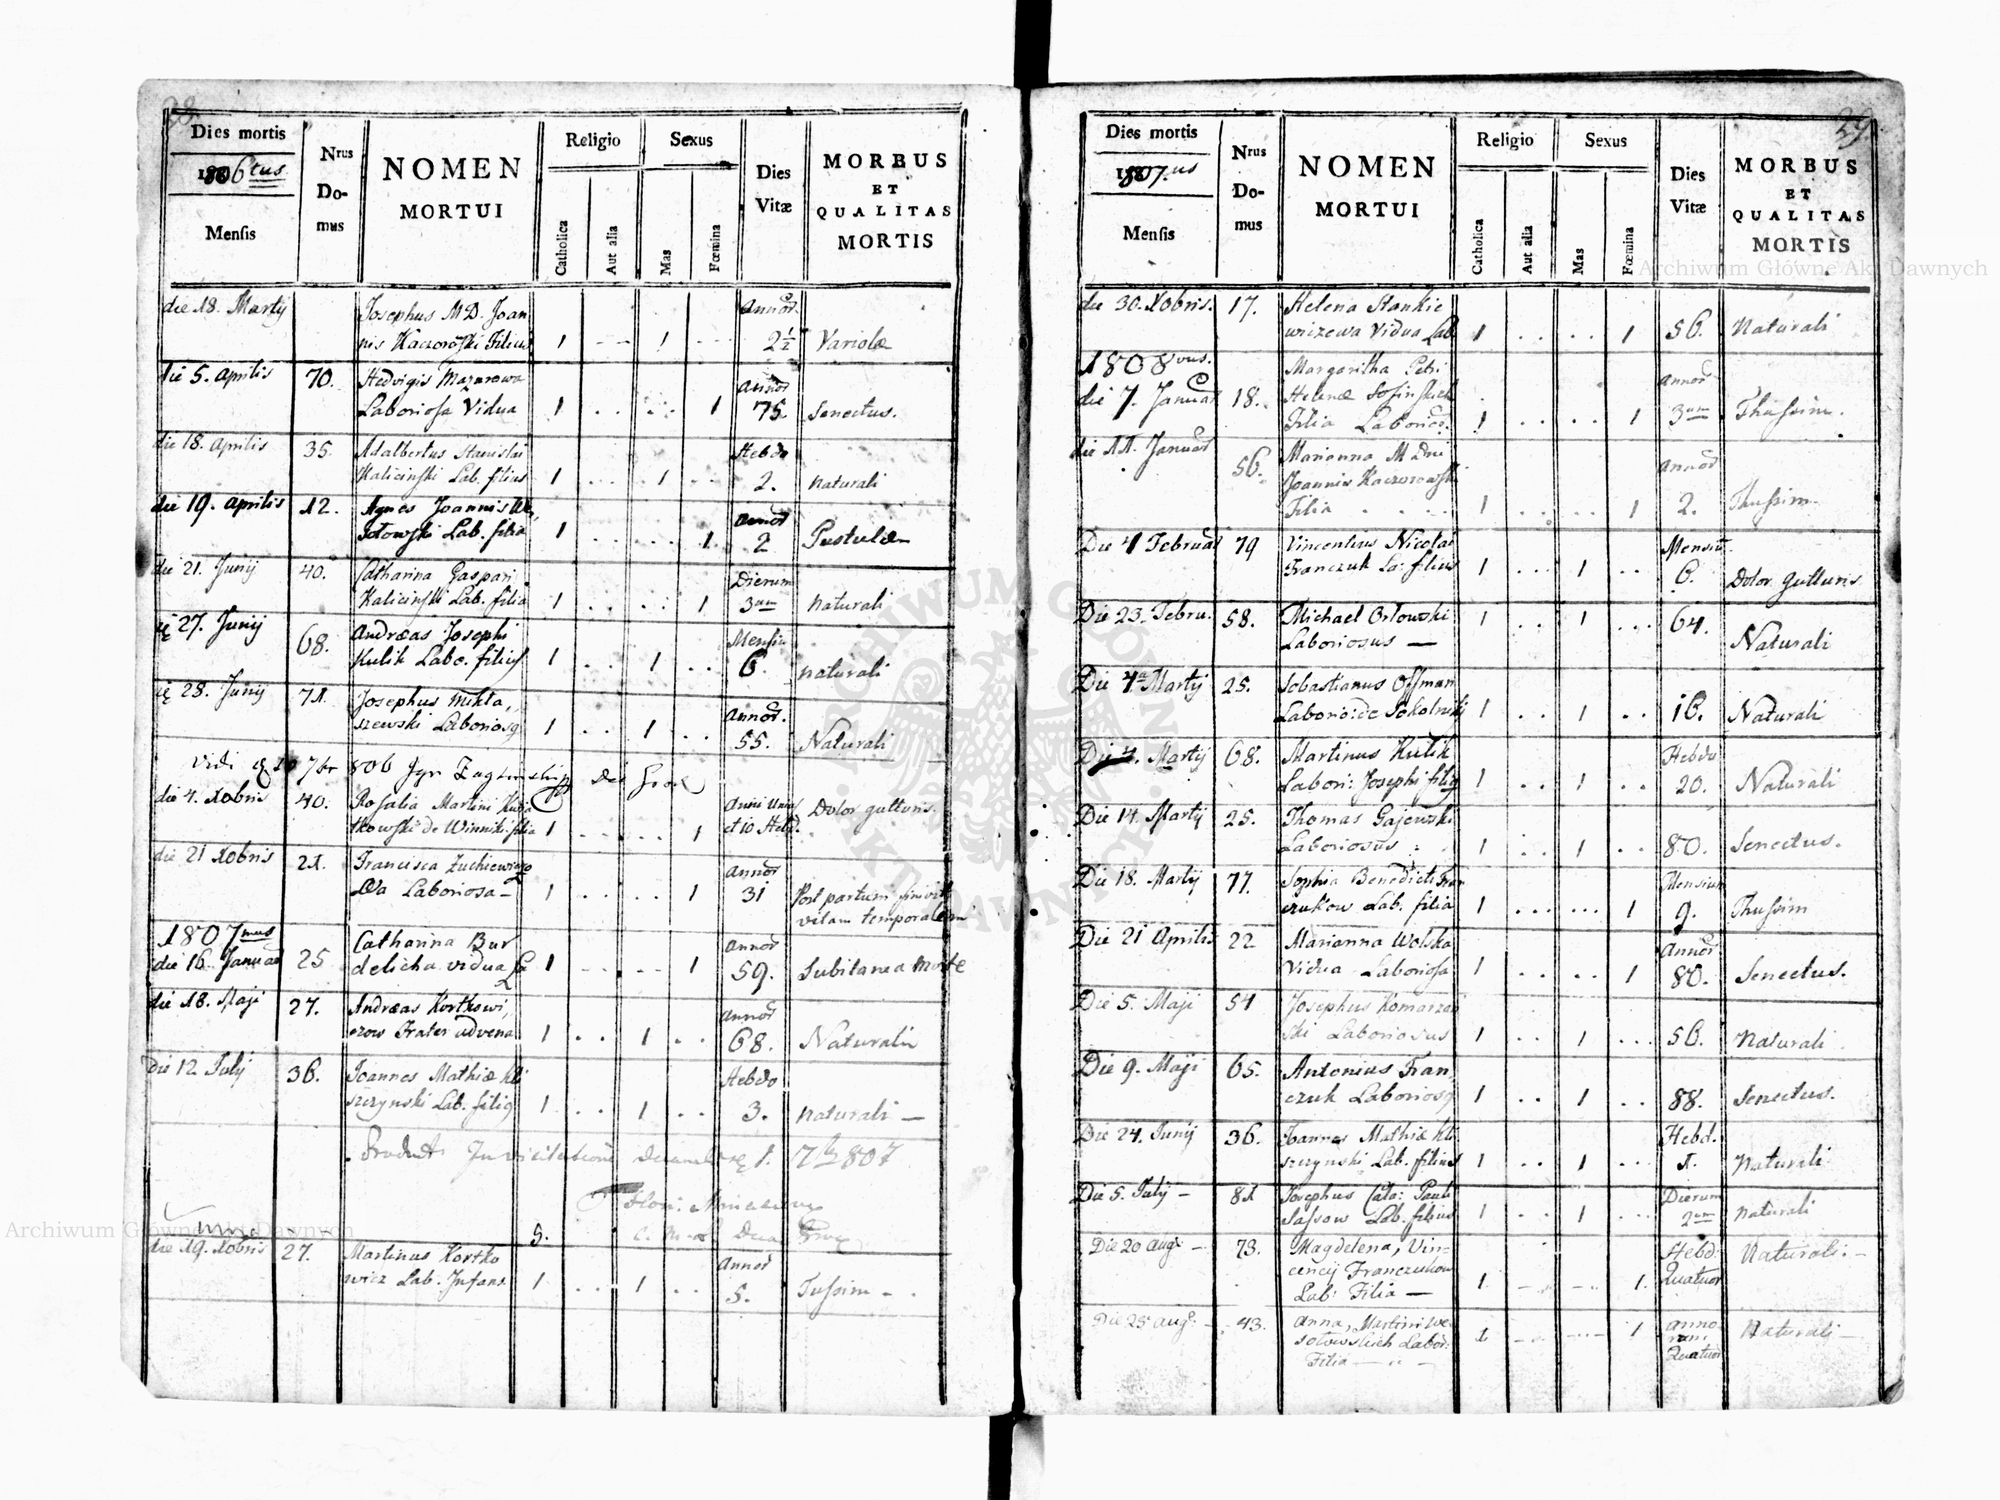 28.
Dies mortis
1806tus
Mensis
Nrus
Do-
mus
NOMEN
MORTUI
Religio
Catholica
Aut alia
Sexus
Mas
Fœmina
Dies
Vitæ
MORBUS
ET
QUALITAS
MORTIS
die 18. Martÿ
Josephus MD. Joan
nis Kaczorowski Filius 1 1
Annor. 2 1/2 Variolæ
die 5. Aprilis 70. Hedvigis Mazurowa
Laboriosa Vidua 1 1
Annor 75. Senectus.
die 18. Aprilis 35. Adalbertus Stanislai
Kalicinski Lab. filius 1 1
Hebdo 2. naturali
die 19. Aprilis 12. Agnes Joannis We,
sołowski Lab. filia 1 1
Annor 2 Pustulæ
die 21. Junÿ 40. Catharina Gaspari
Kalicinski Lab. filia 1 1
Dierum 3um naturali
27. Junÿ 68. Andræas Josephi
Kulik Labo. filius 1 1
Mensiu 6. naturali
28. Junÿ 71. Josephus Mikła,
szewski Laboriosq 1 1
Annor. 55. Naturali
Vidi 7br 806
die 4. Xobris 40. Rosalia Martini
tkowski de Winniki filia 1 1
Anni Unius
et 10 Hebd. Dolor gutturis.
die 21 Xobris 21. Francisca Zuchiewiczo
wa Laboriosa 1 1
Annor 31 Post partum finivit
vitam temporalem
1807mus
die 16. Januar 25 Catharina Bur
delicha vidua La 1 1
Annor 59. Subitanea Morte
die 18. Maji 27. Andræas Kortkowi,
czow Frater advena 1 1
Annor 68. Naturali
Die 12 Julÿ 36. Joannes Mathiæ Kli
szczynski Lab. filiq 1 1
Hebdo 3. naturali
1. 7br 807
die 19. Xobris 27. Martinus Kortko
wicz Lab. Infans 1 1
Annor 5. Tussim
29.
Dies mortis
1807.us
Mensis
Nrus
Do-
mus
NOMEN
MORTUI
Religio
Catholica
Aut alia
Sexus
Mas
Fœmina
Dies
Vitæ
MORBUS
ET
QUALITAS
MORTIS
die 30. Xobris. 17. Helena Stankie
wiczewa Vidua Lab. 1 1
56. Naturali
1808vus.
die 7. Januar 18. Margaritha Petri
Helenæ Sosinskich
Filia Laborior. 1 1
Annor 3um Thussim.
die 11. Januar 56. Marianna M Dni
Joannis Kaczorowski
Filia 1 1
Annor 2. Thussim.
Die 4 Februar 79 Vincentius Nicolai
Franczuk La: filius 1 1
Mensiu. 6. Dolor gutturis
Die 23. Febru. 58. Michael Orłowski
Laboriosus 1 1
64. Naturali
Die 4a Martÿ 25. Sebastianus Offman
Laborio: de Sokolniki 1 1
16. Naturali
Die 4. Martÿ 68. Martinus Kulik
Labori: Josephi filiq 1 1
Hebdo 20. Naturali
Die 14. Martÿ 25. Thomas Gajewski
Laboriosus 1 1
80. Senectus.
Die 18. Martÿ 77. Sophia Benedicti Fran
czukow Lab. filia 1 1
Mensium 9. Thussim
Die 21 Aprilis 22 Marianna Wolska
Vidua Laboriosa 1 1
Annor 80. Senectus.
Die 5. Maji 54 Josephus Komarzań
ski Laboriosus 1 1
56. Naturali
Die 9. Maji 65. Antonius Fran,
czuk Laboriosq 1 1
88. Senectus.
Die 24. Junÿ 36. Joannes Mathiæ Kli
szczynski Lab. filius 1 1
Hebd. 1. Naturali
Die 5. Julÿ 81 Josephus Cata: Pauli
Sassow Lab. filius 1 1
Dierum 2um Naturali
Die 20 Aug. 73. Magdelena, Vin=
cencÿ Franczukow
Lab: Filia 1 1.
Hebd: Quatuor Naturali.
Die 25 Aug. 43. Anna, Martini We
sołowskich Labor:
Filia 1 1
Anno
rum.
Quatuor Naturali
Archiwum Główne Akt Dawnych
Archiwum Główne Akt Dawnych
ARCHIWUM GŁÓWNE AKT DAWNYCH